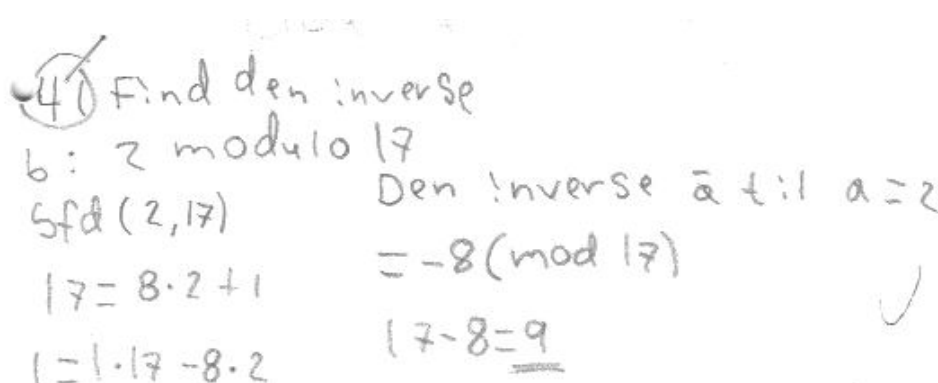 41 Find den inverse
b: 2 modulo 17
Sfd (2,17)
17 = 8·2 + 1
1 = 1·17 - 8·2
Den inverse ā til a = 2
= -8 (mod 17)
17 - 8 = 9